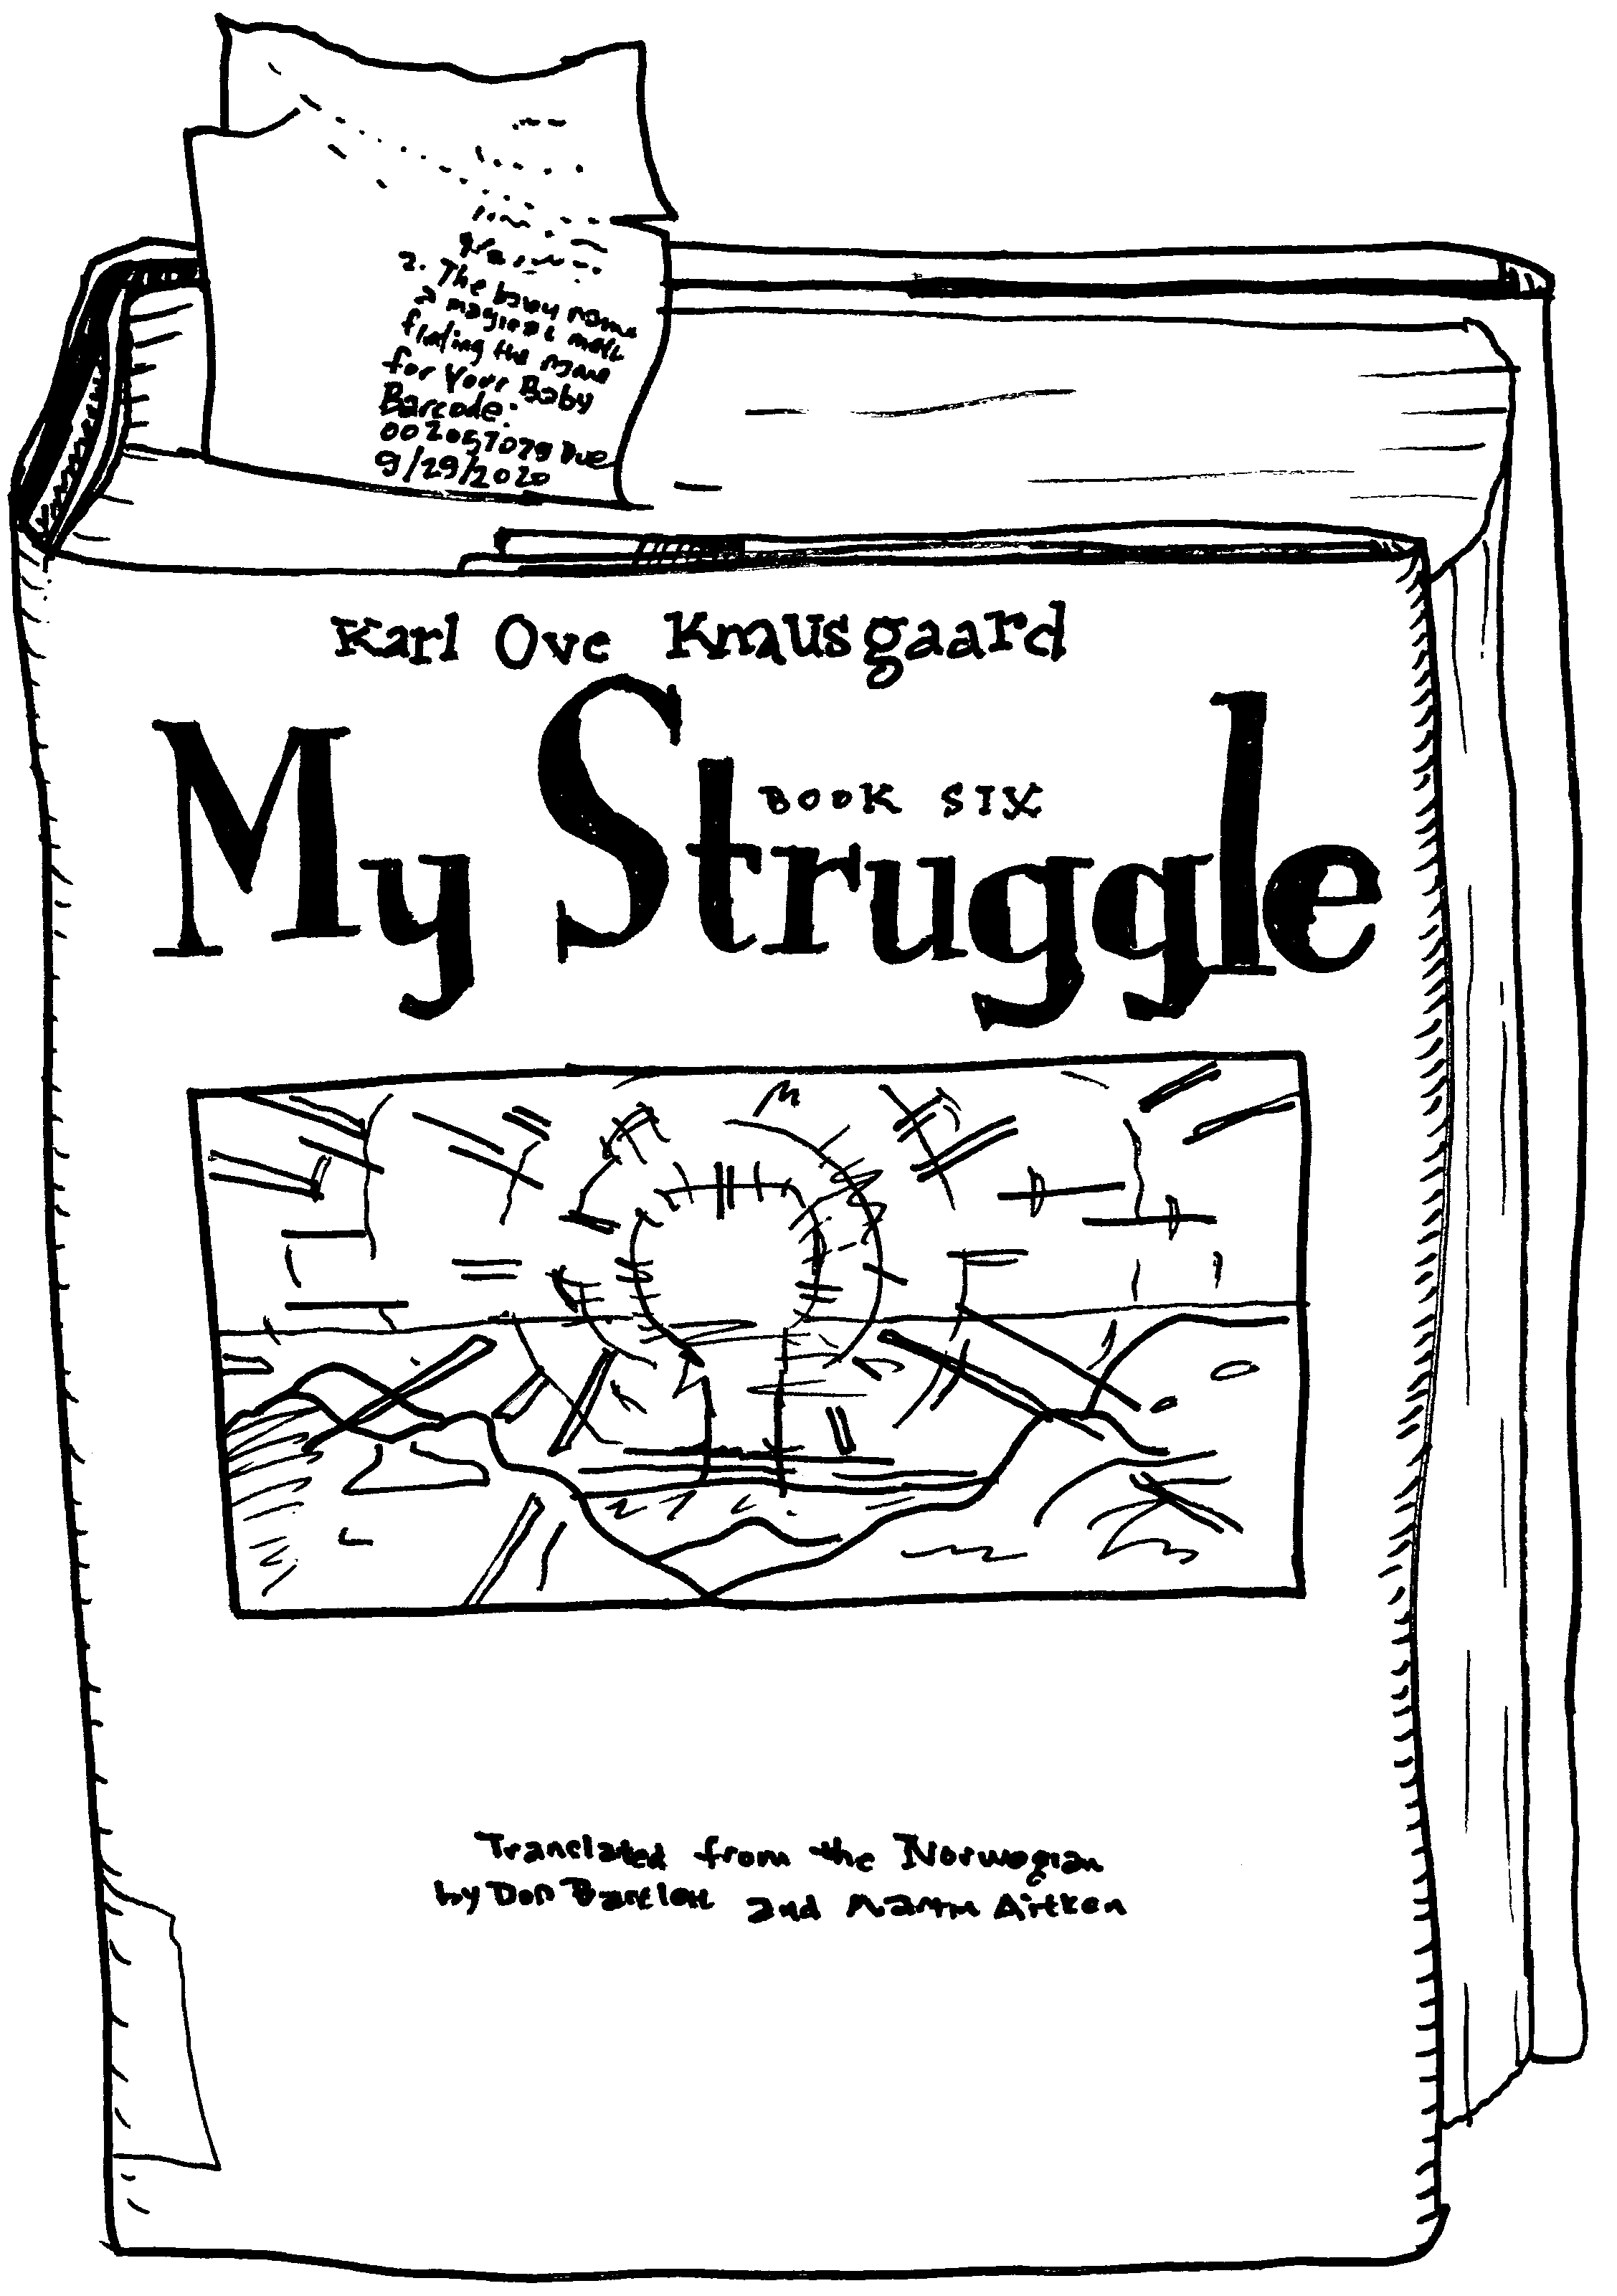 2. The baby name
a magical meth
finding the name
for Your Baby
Barcode:
002057079 Due
9/29/2020
Karl Ove Knausgaard
My Struggle
BOOK SIX
Translated from the Norwegian
by Don Bartlett and Martin Aitken